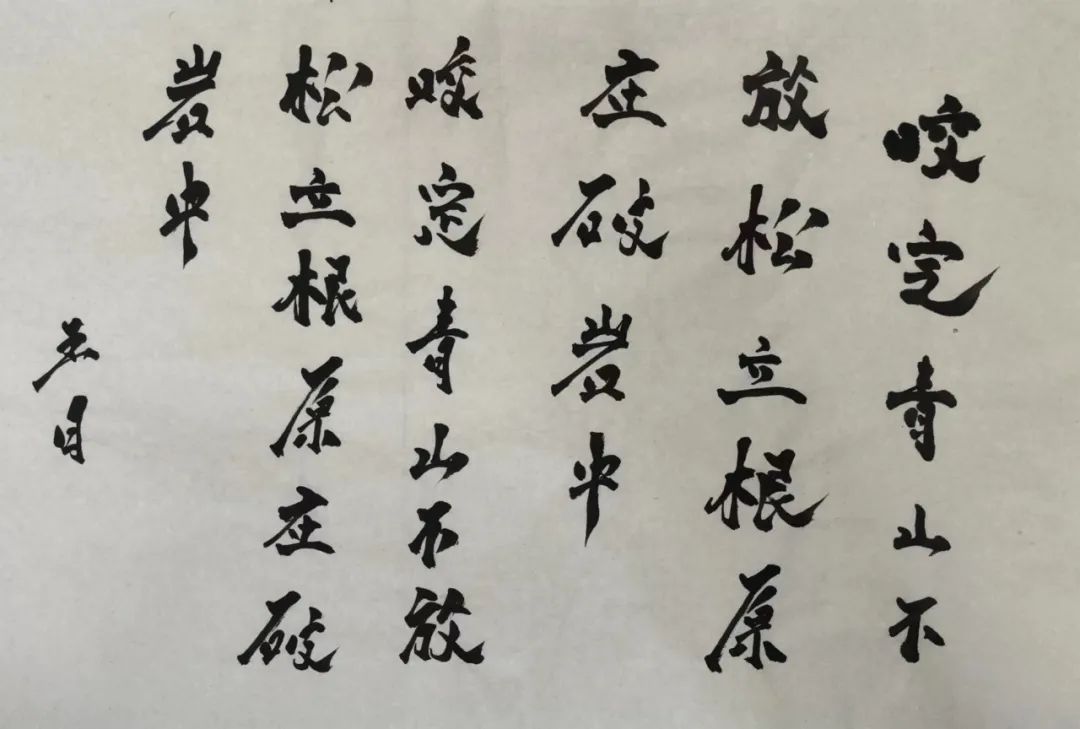 咬定青山不
放松立根原
在破岩中
咬定青山不放
松立根原在破
岩中